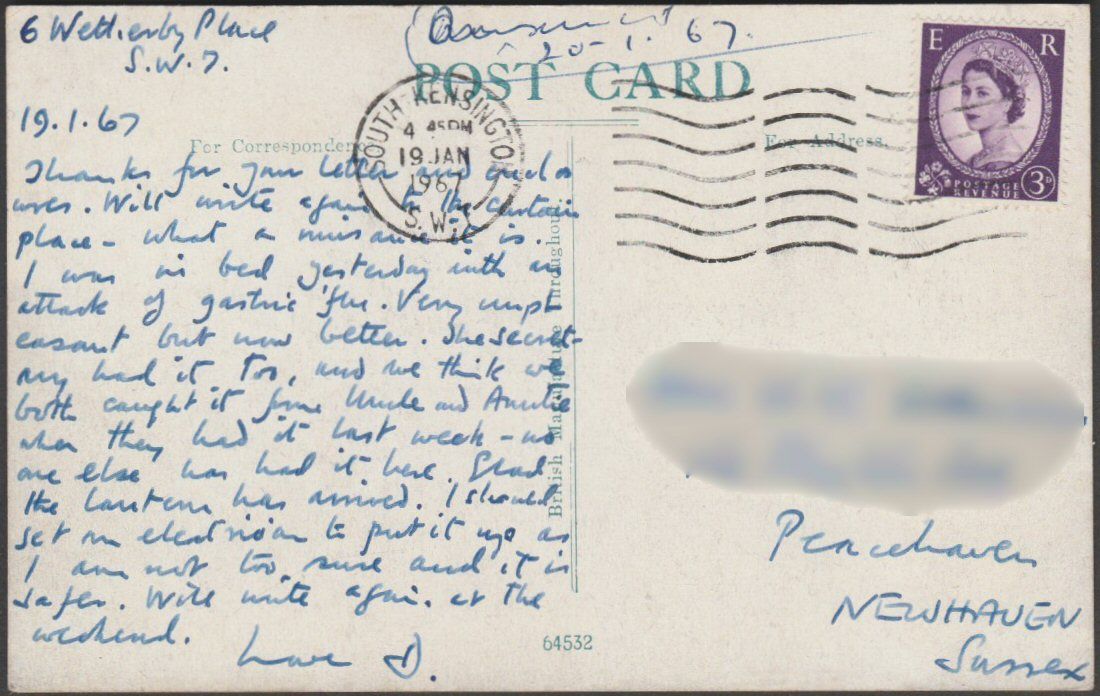 6 Wetherby Place
S.W.7.
19.1.67
Thanks for your letter and enclos
ures. Will write again to the curtain
place - what a nuisance it is.
I was in bed yesterday with an
attack of gastric 'flu. Very unpl
easant but now better. The secret-
ary had it too, and we think we
both caught it from Uncle and Auntie
when they had it last week - no
one else has had it here. Glad
the lantern has arrived. I should
get an electrician to put it up as
I am not too sure and it is
safer. Will write again at the
weekend.
Love D.
20-1.67.
POST CARD
For Correspondence
For Address.
British Manufacture Throughout.
64532
SOUTH KENSINGTON
4 45PM
19 JAN
1967
S.W.7
E R
POSTAGE
REVENUE
3D
Peacehaven
NEWHAVEN
Sussex